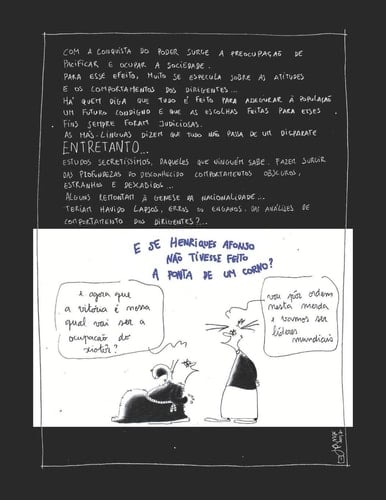 COM A CONQUISTA DO PODER SURGE A PREOCUPAÇÃO DE
PACIFICAR E OCUPAR A SOCIEDADE.
PARA ESSE EFEITO, MUITO SE ESPECULA SOBRE AS ATITUDES
E OS COMPORTAMENTOS DOS DIRIGENTES...
HÁ QUEM DIGA QUE TUDO É FEITO PARA ASSEGURAR À POPULAÇÃO
UM FUTURO CONDIGNO E QUE AS ESCOLHAS FEITAS PARA ESSES
FINS SEMPRE FORAM JUDICIOSAS.
AS MÁS-LINGUAS DIZEM QUE TUDO NÃO PASSA DE UM DISPARATE
ENTRETANTO...
ESTUDOS SECRETÍSSIMOS, DAQUELES QUE NINGUÉM SABE, FAZEM SURGIR
DAS PROFUNDEZAS DO DESCONHECIDO COMPORTAMENTOS OBSCUROS,
ESTRANHOS E DESCABIDOS...
ALGUNS REMONTAM À GÉNESE DA NACIONALIDADE...
TERIAM HAVIDO LAPSOS, ERROS OU ENGANOS, NAS ANÁLISES DE
COMPORTAMENTO DOS DIRIGENTES?...
E SE HENRIQUES AFONSO
NÃO TIVESSE FEITO
A PONTA DE UM CORNO?
e agora que
a vitória é nossa
qual vai ser a
ocupação do
vou pôr ordem
nesta merda
e vamos ser
líderes
mundiais